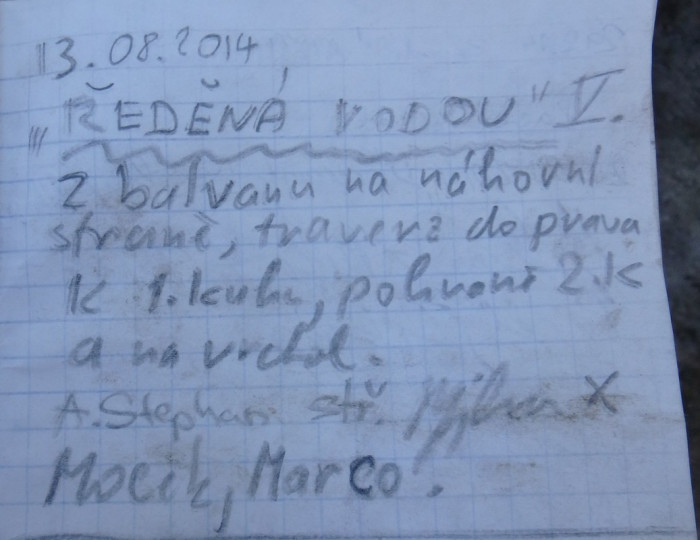 13.08.2014
"ŘEDĚNÁ VODOU" V.
Z balvanu na náhorní
straně, traverz do prava
k 1.kuhu, po hraně 2.k
a na vrchol.
A.Stephan stř.
Mocik, Marco.